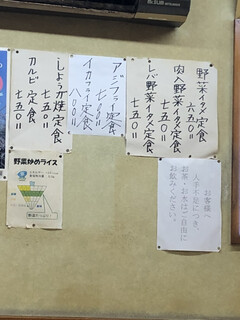 野菜イタメ定食
六五〇円
肉入野菜イタメ定食
七五〇円
レバ野菜イタメ定食
七五〇円
アジフライ定食
イカフライ定食
八〇〇円
しょうが焼定食
七五〇円
カルビ定食
七五〇円
お客様へ
人手不足につき、
お茶・お水はご自由に
お飲みください。
野菜炒めライス